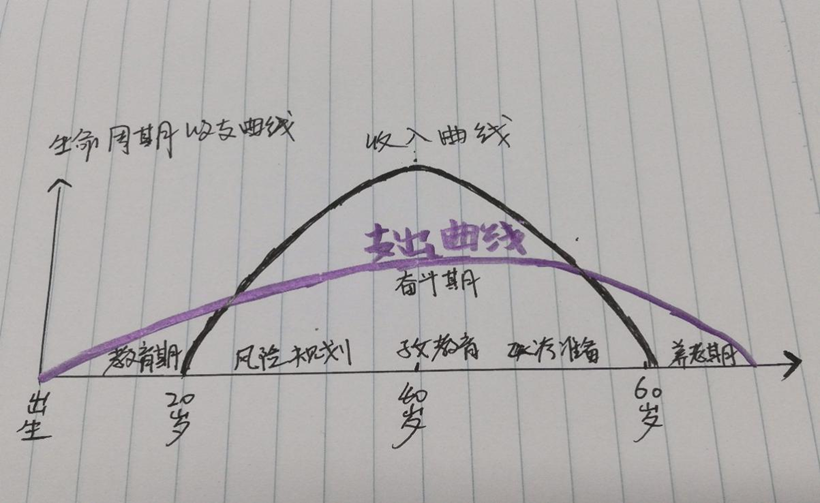 生命周期收支曲线
收入曲线
支出曲线
奋斗期
教育期 风险规划 子女教育 退休准备 养老期
出生 20岁 40岁 60岁